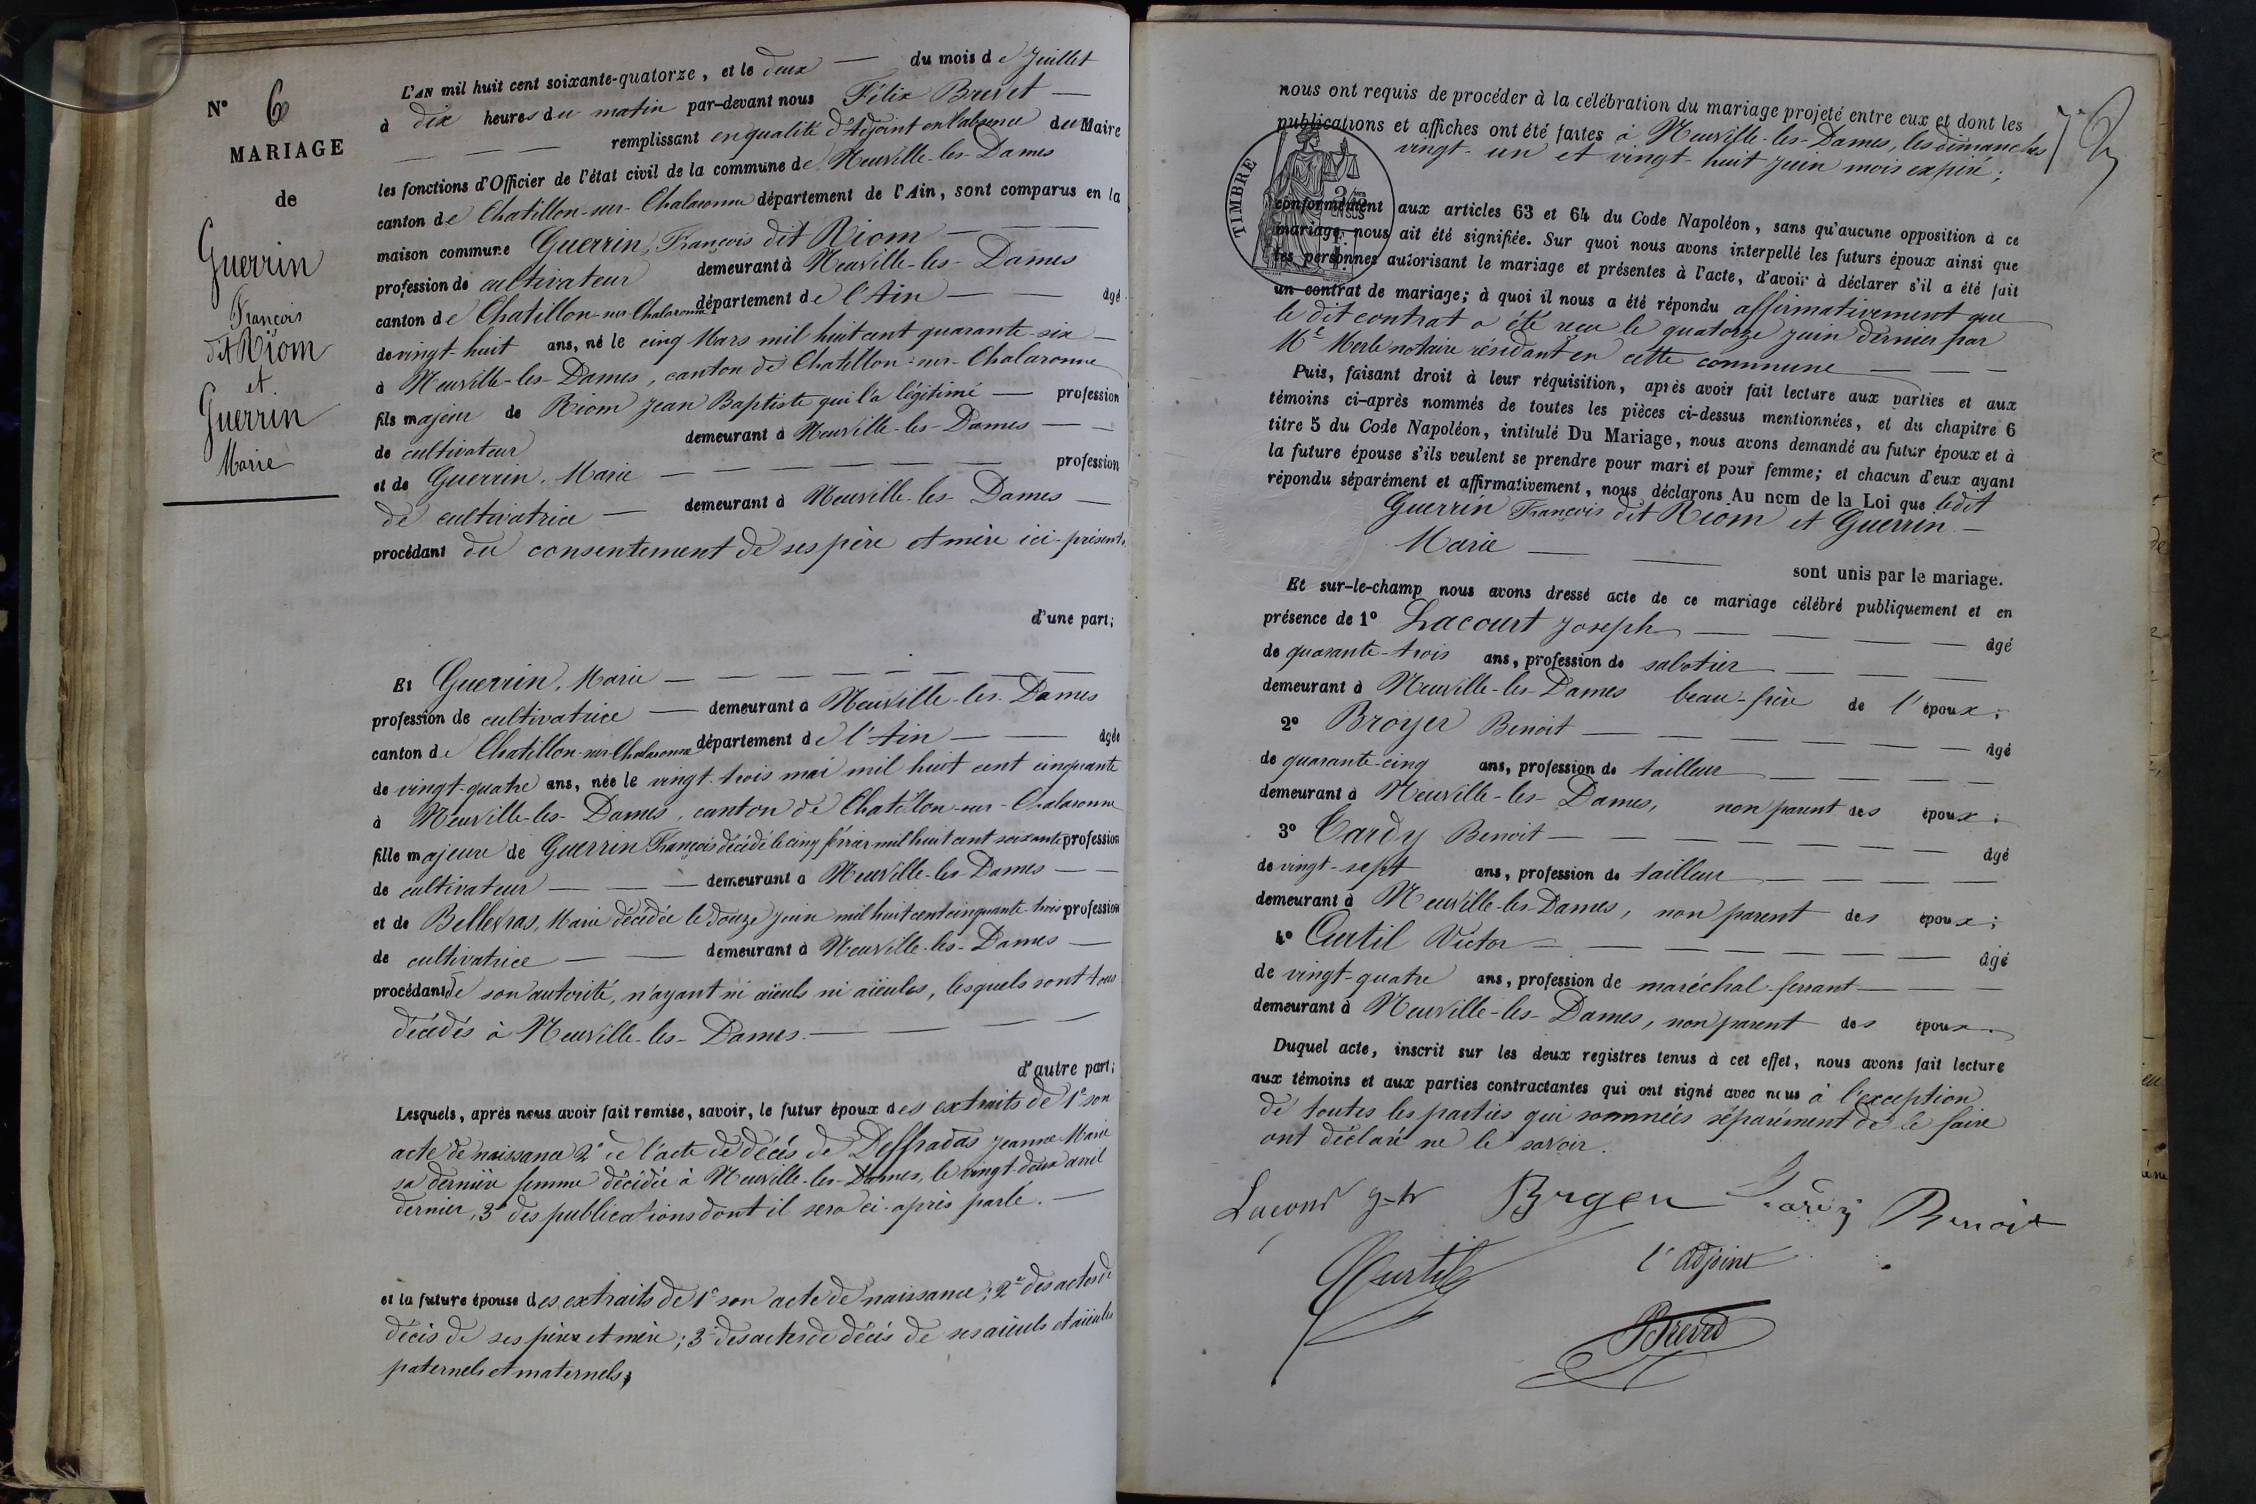 N° 6
MARIAGE
de
Guerrin
François
dit Riom
et
Guerrin
Marie
L'AN mil huit cent soixante-quatorze, et le deux — du mois de Juillet
à dix heures du matin par-devant nous Félix Brevet —
— — — remplissant en qualité d'Adjoint en l'absence du Maire
les fonctions d'Officier de l'état civil de la commune de Neuville-les-Dames
canton de Chatillon-sur-Chalaronne département de l'Ain, sont comparus en la
maison commune Guerrin, François dit Riom — — —
profession de cultivateur demeurant à Neuville-les-Dames
canton de Chatillon-sur-Chalaronne département de l'Ain — — âgé
de vingt-huit ans, né le cinq Mars mil huit cent quarante-six —
à Neuville-les-Dames, canton de Chatillon-sur-Chalaronne
fils majeur de Riom Jean Baptiste qui l'a légitimé — profession
de cultivateur demeurant à Neuville-les-Dames — —
et de Guerrin, Marie — — — — — — profession
de cultivatrice — demeurant à Neuville-les-Dames —
procédant du consentement de ses père et mère ici-présents
d'une part;
Et Guerrin, Marie — — — — — — — —
profession de cultivatrice — demeurant à Neuville-les-Dames
canton de Chatillon-sur-Chalaronne département de l'Ain — — âgée
de vingt-quatre ans, née le vingt-trois mai mil huit cent cinquante
à Neuville-les-Dames, canton de Chatillon-sur-Chalaronne
fille majeure de Guerrin François décédé le cinq février mil huit cent soixante profession
de cultivateur — — — demeurant à Neuville-les-Dames — —
et de Bellevras, Marie décédée le douze juin mil huit cent cinquante-trois profession
de cultivatrice — — demeurant à Neuville-les-Dames —
procédant de son autorité, n'ayant ni aïeuls ni aïeules, lesquels sont tous
décédés à Neuville-les-Dames. — — — —
d'autre part;
Lesquels, après nous avoir fait remise, savoir, le futur époux des extraits de 1° son
acte de naissance 2° de l'acte de décès de Deffradas Jeanne Marie
sa dernière femme décédée à Neuville-les-Dames, le vingt-deux avril
dernier, 3° des publications dont il sera ci-après parlé. —
et la future épouse des extraits de 1° son acte de naissance; 2° des actes de
décès de ses père et mère; 3° des actes de décès de ses aïeuls et aïeules
paternels et maternels;
nous ont requis de procéder à la célébration du mariage projeté entre eux et dont les
publications et affiches ont été faites à Neuville-les-Dames, les dimanches
vingt-un et vingt-huit Juin mois expiré;
TIMBRE
conformément aux articles 63 et 64 du Code Napoléon, sans qu'aucune opposition à ce
mariage nous ait été signifiée. Sur quoi nous avons interpellé les futurs époux ainsi que
les personnes autorisant le mariage et présentes à l'acte, d'avoir à déclarer s'il a été fait
un contrat de mariage; à quoi il nous a été répondu affirmativement que
le dit contrat a été reçu le quatorze juin dernier par
Me Merle notaire résidant en cette commune — — —
Puis, faisant droit à leur réquisition, après avoir fait lecture aux parties et aux
témoins ci-après nommés de toutes les pièces ci-dessus mentionnées, et du chapitre 6
titre 5 du Code Napoléon, intitulé Du Mariage, nous avons demandé au futur époux et à
la future épouse s'ils veulent se prendre pour mari et pour femme; et chacun d'eux ayant
répondu séparément et affirmativement, nous déclarons Au nom de la Loi que ledit
Guerrin François dit Riom et Guerrin —
Marie — —
sont unis par le mariage.
Et sur-le-champ nous avons dressé acte de ce mariage célébré publiquement et en
présence de 1° Lacourt Joseph — — — — — âgé
de quarante-trois ans, profession de sabotier — — —
demeurant à Neuville-les-Dames beau-frère de l'époux;
2° Broyer Benoit — — — — — — — âgé
de quarante-cinq ans, profession de tailleur — — — —
demeurant à Neuville-les-Dames, non parent des époux;
3° Cardy Benoit — — — — — — — âgé
de vingt-sept ans, profession de tailleur — — — —
demeurant à Neuville-les-Dames, non parent des époux;
4° Curtil Victor — — — — — — — âgé
de vingt-quatre ans, profession de maréchal-ferrant — — —
demeurant à Neuville-les-Dames, non parent des époux.
Duquel acte, inscrit sur les deux registres tenus à cet effet, nous avons fait lecture
aux témoins et aux parties contractantes qui ont signé avec nous à l'exception
de toutes les parties qui sommées séparément de le faire
ont déclaré ne le savoir.
Lacour Broyer Cardy Benoit
Curtil l'adjoint
Brevet